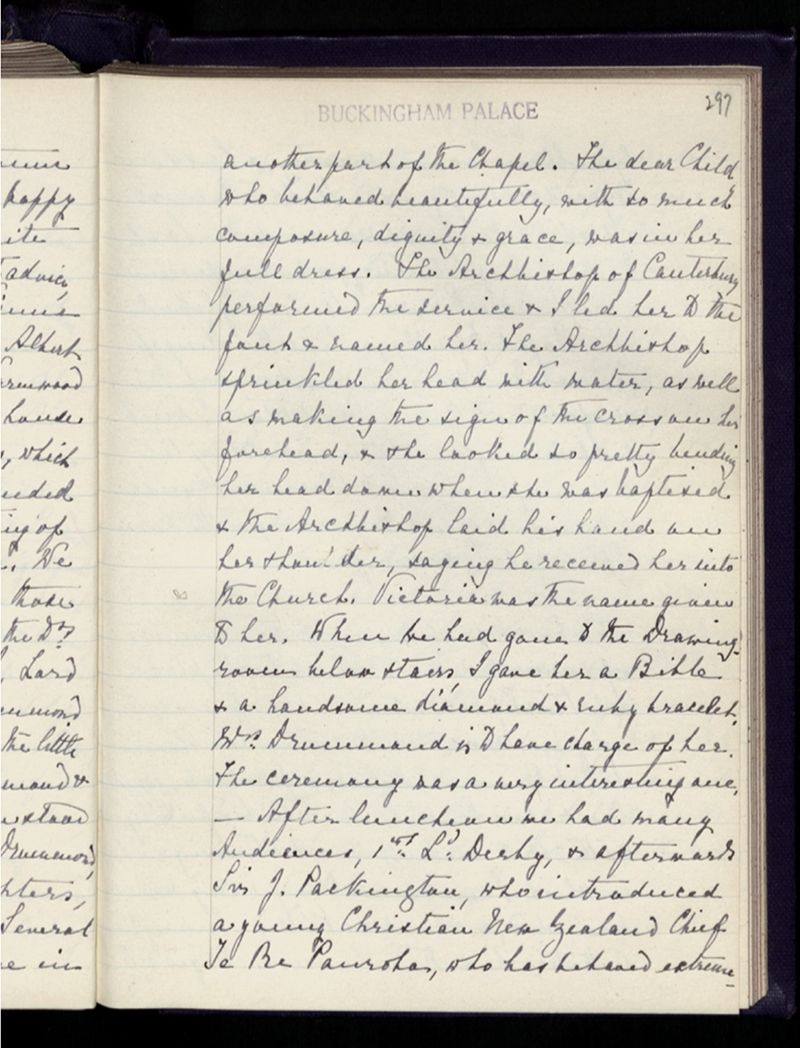 BUCKINGHAM PALACE
297
another part of the Chapel. The dear Child
who behaved beautifully, with so much
composure, dignity & grace, was in her
full dress. The Archbishop of Canterbury
performed the service & I led her to the
font & named her. The Archbishop
sprinkled her head with water, as well
as making the sign of the cross on her
forehead, & she looked so pretty bending
her head down when she was baptised
& the Archbishop laid his hand on
her shoulder, saying he received her into
the Church. Victoria was the name given
to her. When we had gone to the Drawing-
room below stairs, I gave her a Bible
& a handsome diamond & ruby bracelet.
Mrs. Drummond is to have charge of her.
The ceremony was a very interesting one,
— After luncheon we had many
Audiences, 1st. Ld. Derby, & afterwards
Sir J. Packington, who introduced
a young Christian New Zealand Chief
Te Re, who has behaved extreme
happy
ite
advice
Albert
house
, which
ing of
. We
those
the Drs
, Lord
the little
mond &
stood
Drummond,
hters,
Several
e in